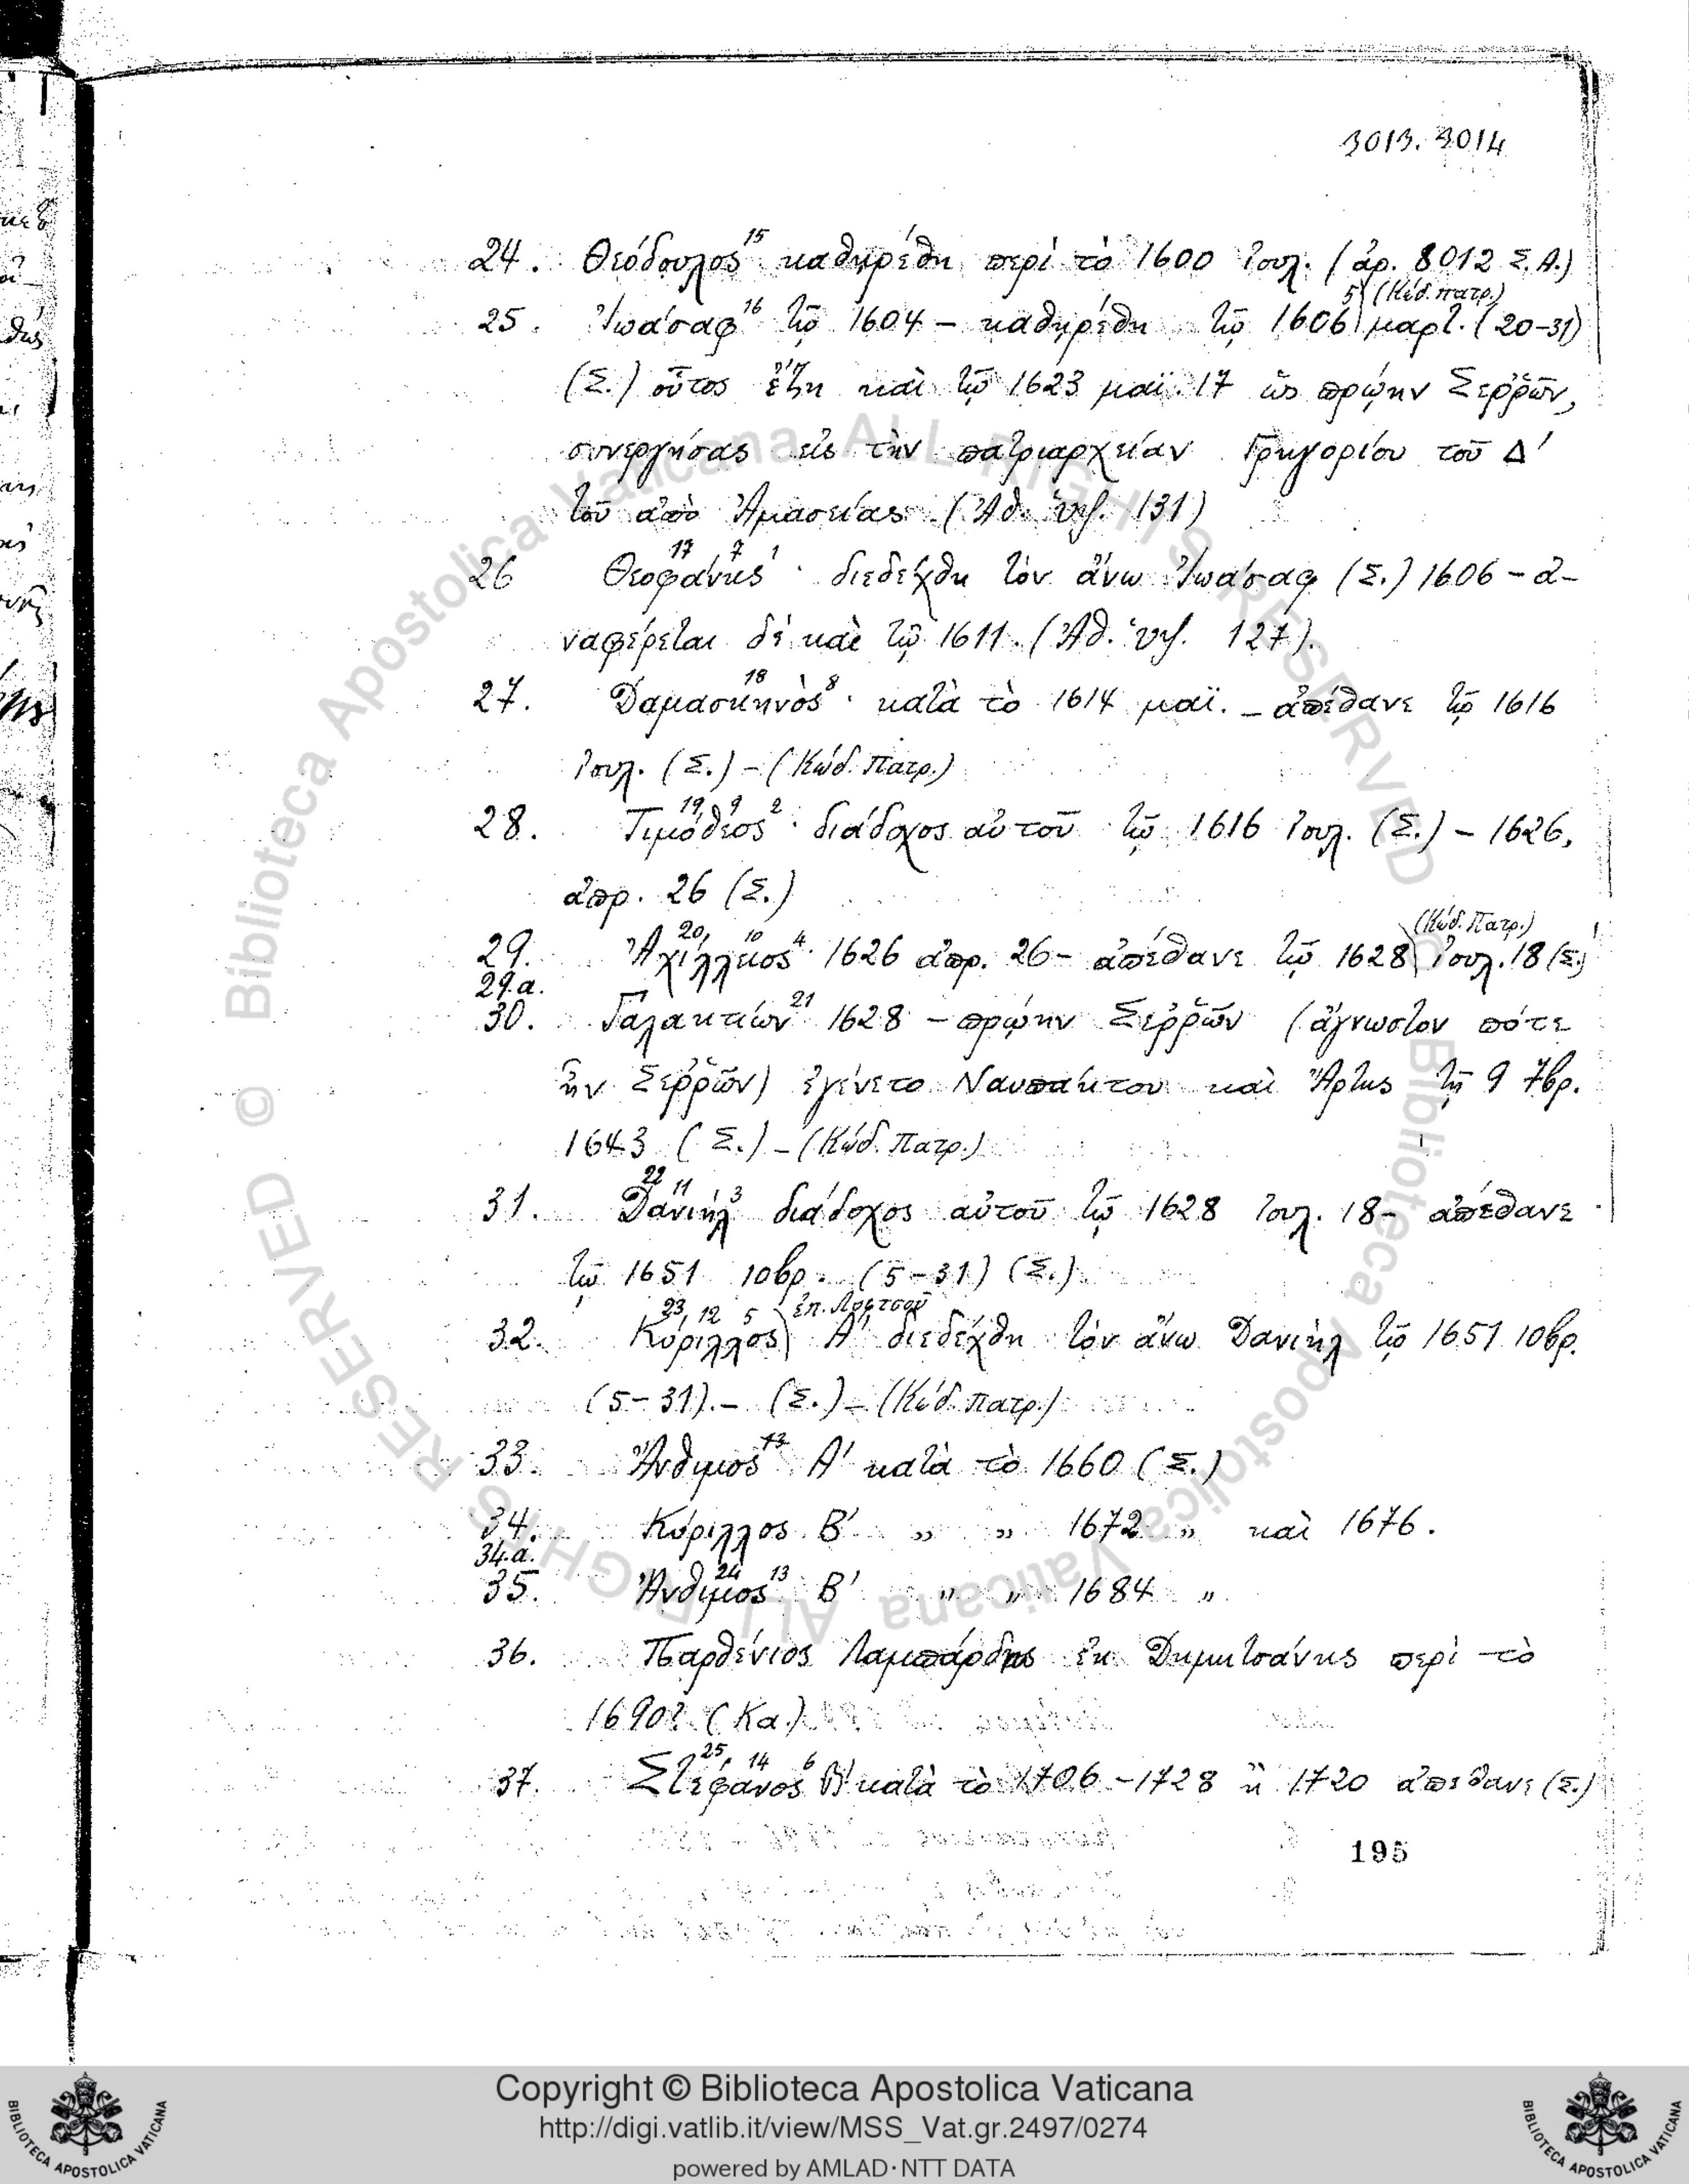 3013. 3014
24. Θεόδουλος 15 καθῃρέθη περὶ τὸ 1600 Ἰουλ. (ἀρ. 8012 Σ.Α.)
5 (Κώδ. Πατρ.)
25. Ἰωάσαφ 16 τῷ 1604 – καθῃρέθη τῷ 1606 μαρτ. (20-31)
(Σ.) οὗτος ἔζη καὶ τῷ 1623 μαΐ. 17 ὡς πρῴην Σεῤῥῶν,
συνεργήσας εἰς τὴν πατριαρχείαν Γρηγορίου τοῦ Δ'
τοῦ ἀπὸ Ἀμασείας (Ἀθ. Ὑψ. 131)
17 7 1
26 Θεοφάνης · διεδέχθη τὸν ἄνω Ἰωάσαφ (Σ.) 1606 – ἀ-
ναφέρεται δὲ καὶ τῷ 1611. (Ἀθ. Ὑψ. 127).
18 8
27. Δαμασκηνὸς · κατὰ τὸ 1614 μαΐ. – ἀπέθανε τῷ 1616
Ἰουλ. (Σ.) – (Κώδ. Πατρ.)
19 9 2
28. Τιμόθεος · διάδοχος αὐτοῦ τῷ 1616 Ἰουλ. (Σ.) – 1626,
ἀπρ. 26 (Σ.)
20 10 4 (Κώδ. Πατρ.)
29. Ἀχίλλειος · 1626 ἀπρ. 26 – ἀπέθανε τῷ 1628 Ἰουλ. 18 (Σ.)
29.α.
30. Γαλακτίων 21 1628 – πρῴην Σεῤῥῶν (ἄγνωστον πότε
ἦν Σεῤῥῶν) ἐγένετο Ναυπάκτου καὶ Ἄρτης τῇ 9 7βρ.
1643 (Σ.) – (Κώδ. Πατρ.)
22 11 3
31. Δανιὴλ διάδοχος αὐτοῦ τῷ 1628 Ἰουλ. 18 – ἀπέθανε
τῷ 1651 10βρ. (5-31) (Σ.)
23 12 5 ἐπ.
32. Κύριλλος Α' διεδέχθη τὸν ἄνω Δανιὴλ τῷ 1651 10βρ.
(5-31). – (Σ.) – (Κώδ. Πατρ.)
33. Ἄνθιμος 13 Α' κατὰ τὸ 1660 (Σ.)
34. Κύριλλος Β' „ „ 1672 „ καὶ 1676.
34.α.
35. Ἄνθιμος 24 13 Β' „ „ 1684 „
36. Παρθένιος Λαμπάρδης ἐκ Δημητσάνης περὶ τὸ
1690? (Κα.)
25 14 6
37. Στέφανος Β' κατὰ τὸ 1706 – 1728 ἢ 1720 ἀπέθανε (Σ.)
195
© Biblioteca Apostolica Vaticana ALL RIGHTS RESERVED
© Biblioteca Apostolica Vaticana ALL RIGHTS RESERVED
Copyright © Biblioteca Apostolica Vaticana
http://digi.vatlib.it/view/MSS_Vat.gr.2497/0274
powered by AMLAD·NTT DATA
BIBLIOTECA APOSTOLICA VATICANA
BIBLIOTECA APOSTOLICA VATICANA